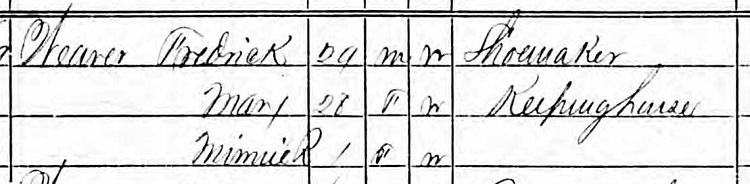 Weaver Fredrick 29 m w Shoemaker
Mary 28 F w Keepinghouse
Minnie R 1 F w